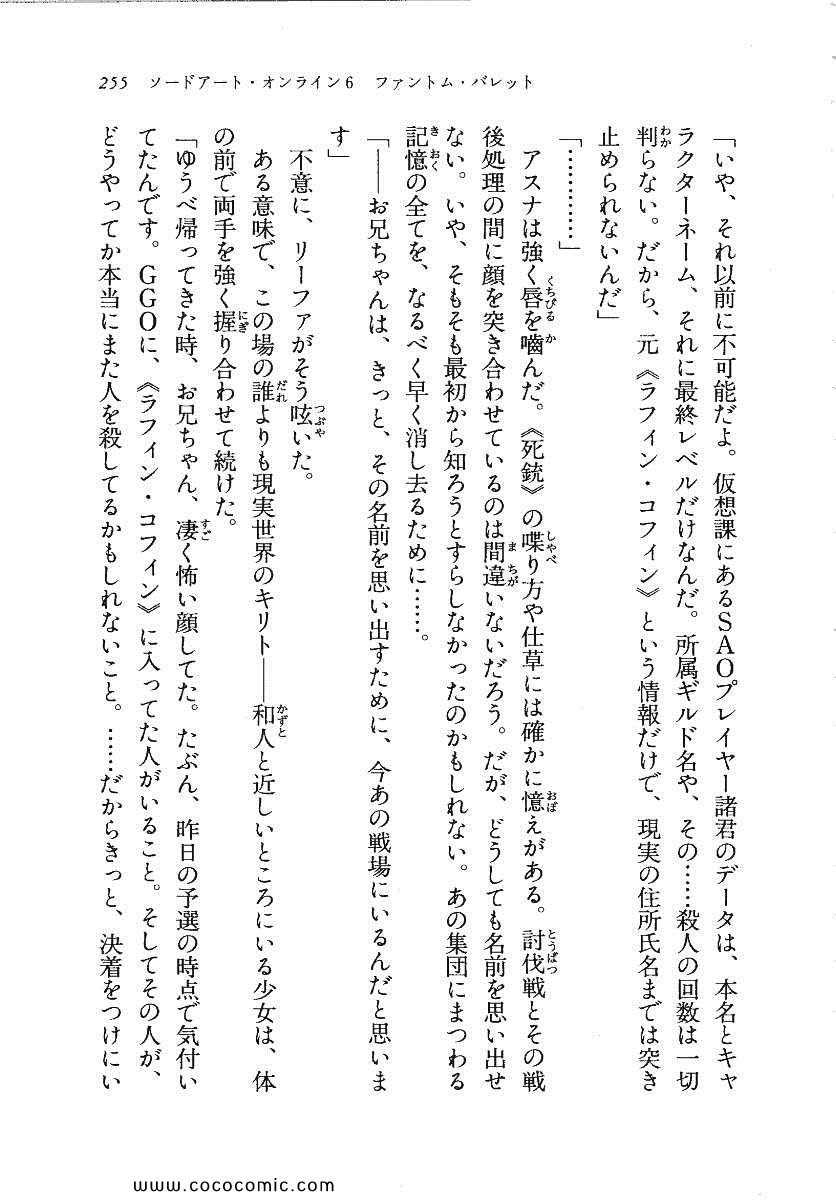 255　ソードアート・オンライン6　ファントム・バレット
「いや、それ以前に不可能だよ。仮想課にあるSAOプレイヤー諸君のデータは、本名とキャ
ラクターネーム、それに最終レベルだけなんだ。所属ギルド名や、その……殺人の回数は一切
判らない。だから、元《ラフィン・コフィン》という情報だけで、現実の住所氏名までは突き
止められないんだ」
「…………」
　アスナは強く唇を嚙んだ。《死銃》の喋り方や仕草には確かに憶えがある。討伐戦とその戦
後処理の間に顔を突き合わせているのは間違いないだろう。だが、どうしても名前を思い出せ
ない。いや、そもそも最初から知ろうとすらしなかったのかもしれない。あの集団にまつわる
記憶の全てを、なるべく早く消し去るために……。
「――お兄ちゃんは、きっと、その名前を思い出すために、今あの戦場にいるんだと思いま
す」
　不意に、リーファがそう呟いた。
　ある意味で、この場の誰よりも現実世界のキリト――和人と近しいところにいる少女は、体
の前で両手を強く握り合わせて続けた。
「ゆうべ帰ってきた時、お兄ちゃん、凄く怖い顔してた。たぶん、昨日の予選の時点で気付い
てたんです。GGOに、《ラフィン・コフィン》に入ってた人がいること。そしてその人が、
どうやってか本当にまた人を殺してるかもしれないこと。……だからきっと、決着をつけにい
www.cococomic.com